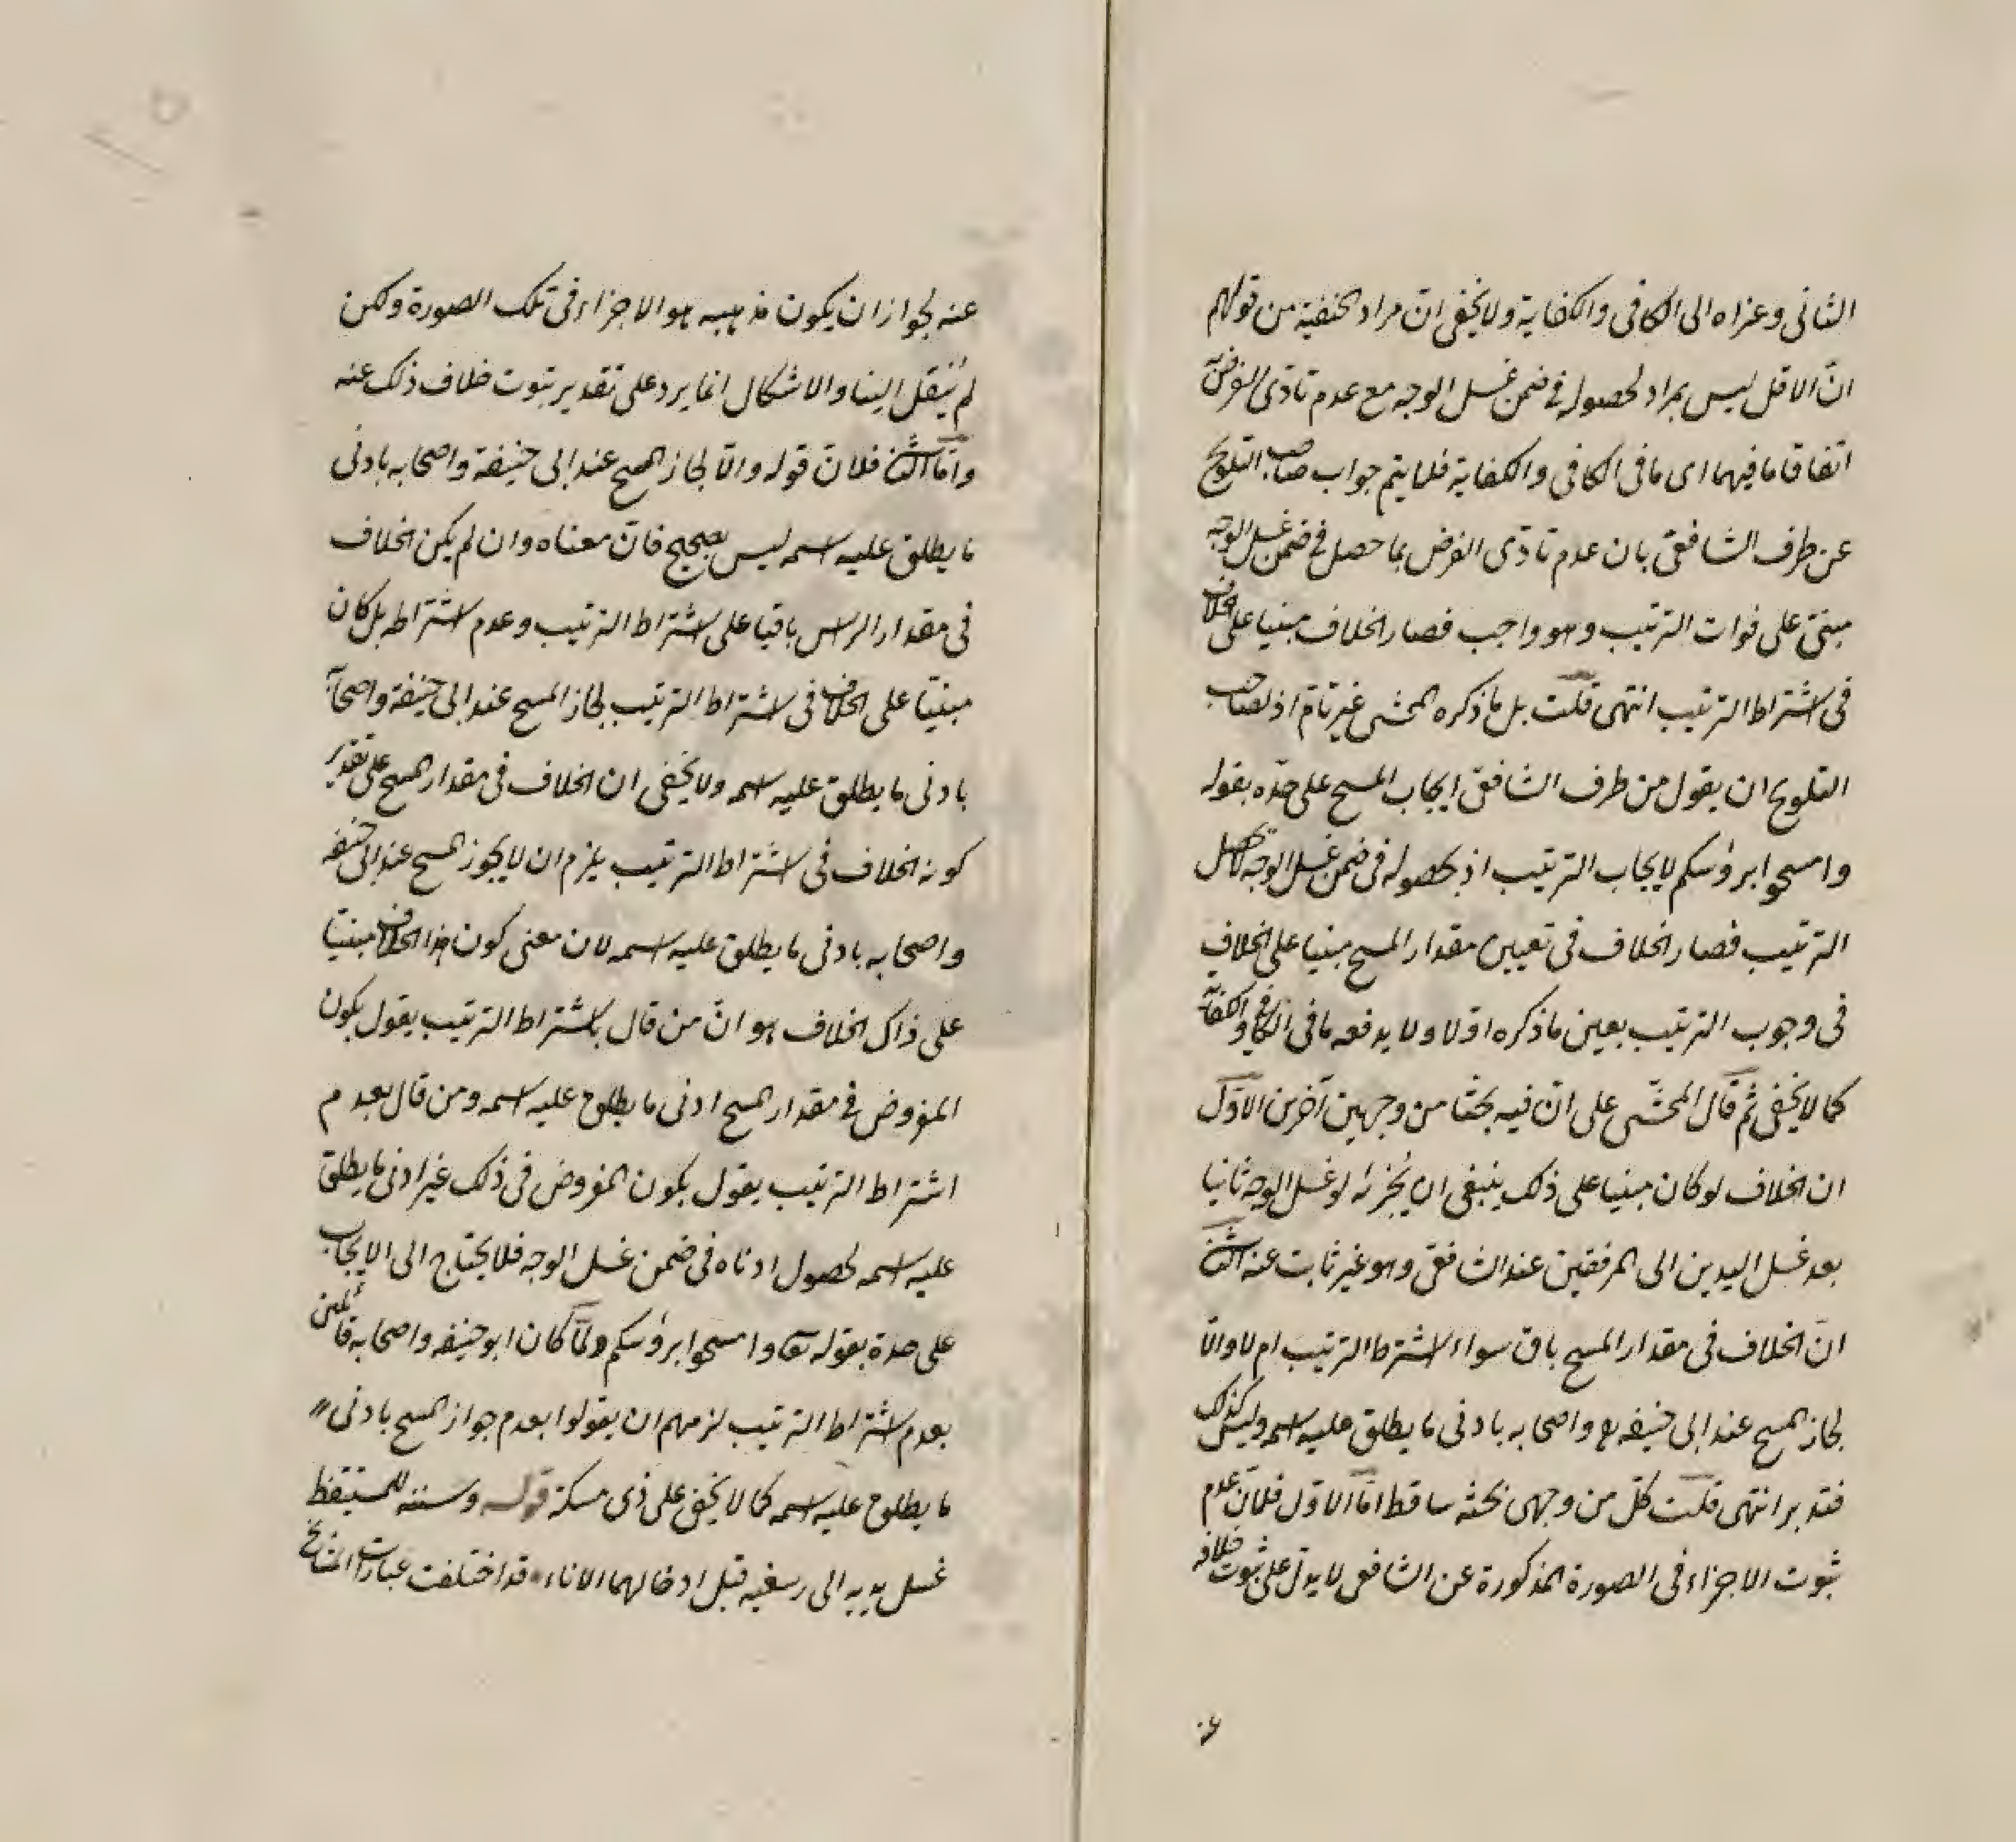 الثانى وعزاه الى الكافى والكفاية ولا يخفى ان مراد الحنفية من قولهم
انّ الاقل ليس بمراد لحصوله فى ضمن غسل الوجه مع عدم تادّى الفرض به
اتفاقا ما فيهما اى ما فى الكافى والكفاية فلما يتم جواب صاحب التلويح
عن طرف الشافعىّ بان عدم تادّى الفرض بما حصل فى ضمن غسل الوجه
مبنىّ على فوات الترتيب وهو واجب فصار الخلاف مبنيا على الخلاف
فى اشتراط الترتيب انتهى قلت بل ما ذكره المحشى غير تامّ اذ لصاحب
التلويح ان يقول من طرف الشافعىّ ايجاب المسح على حدّه بقوله
وامسحوا برؤسكم لايجاب الترتيب اذ بحصوله فى ضمن غسل الوجه لا يحصل
الترتيب فصار الخلاف فى تعيين مقدار المسح مبنيا على الخلاف
فى وجوب الترتيب بعين ما ذكره اوّلا ولا يدفعه ما فى الكافى والكفاية
كما لا يخفى ثم قال المحشّى على انّ فيه بحثا من وجهين آخرين الاوّل
ان الخلاف لو كان مبنيا على ذلك ينبغى ان يجزئه لو غسل الوجه ثانيا
بعد غسل اليدين الى المرفقين عند الشافعىّ وهو غير ثابت عنه الثانى
انّ الخلاف فى مقدار المسح باق سواء اشترط الترتيب ام لا والّا
لجاز المسح عند ابى حنيفه رح واصحابه بادنى ما يطلق عليه اسمه وليس كذلك
فتدبر انتهى قلت كلّ من وجهى بحثه ساقط امّا الاوّل فلانّ عدم
ثبوت الاجزاء فى الصورة المذكورة عن الشافعى لا يدلّ على ثبوت خلافه
عنه
عنه لجواز ان يكون مذهبه هو الاجزاء فى تلك الصورة ولكن
لم يُنقل الينا والاشكال انما يرد على تقدير ثبوت خلاف ذلك عنه
وامّا الثانى فلانّ قوله والّا لجاز المسح عند ابى حنيفة واصحابه بادنى
ما يطلق عليه اسمه ليس بصحيح فانّ معناه وان لم يكن الخلاف
فى مقدار الراس باقيا على اشتراط الترتيب وعدم اشتراطه بل كان
مبنيّا على الخلاف فى اشتراط الترتيب لجاز المسح عند ابى حنيفة واصحابه
بادنى ما يطلق عليه اسمه ولا يخفى ان الخلاف فى مقدار المسح على تقدير
كونه الخلاف فى اشتراط الترتيب يلزم ان لا يجوز المسح عند ابى حنيفه
واصحابه بادنى ما يطلق عليه اسمه لان معنى كون هذا الخلاف مبنيّا
على ذاك الخلاف هو انّ من قال باشتراط الترتيب يقول بكون
المفروض فى مقدار المسح ادنى ما يطلق عليه اسمه ومن قال بعدم
اشتراط الترتيب يقول بكون المفروض فى ذلك غير ادنى ما يطلق
عليه اسمه لحصول ادناه فى ضمن غسل الوجه فلا يحتاج الى الايجاب
على حدة بقوله تعالى وامسحوا برؤسكم ولمّا كان ابو حنيفه واصحابه قائلين
بعدم اشتراط الترتيب لزمهم ان يقولوا بعدم جواز المسح بادنى
ما يطلق عليه اسمه كما لا يخفى على ذى مسكة قوله وسننه للمستيقظ
غسل يديه الى رسغيه قبل ادخالهما الاناء قد اختلفت عبارات المشايخ